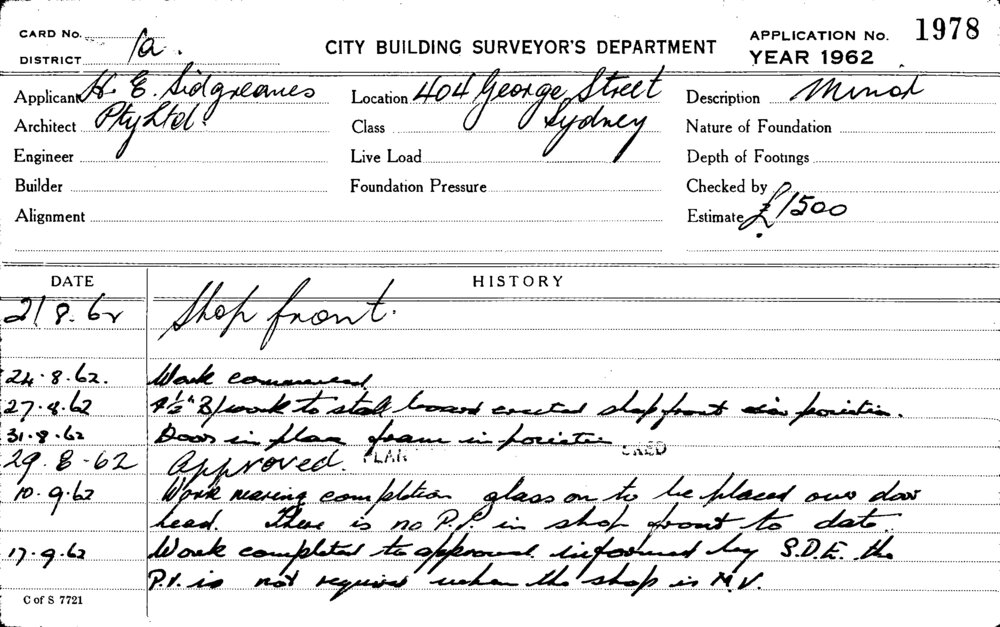 CARD No. 1a.
DISTRICT
CITY BUILDING SURVEYOR'S DEPARTMENT
APPLICATION No. 1978
YEAR 1962
Applicant H. E. Sidgreaves
Location 404 George Street
Description Minor
Architect Pty Ltd.
Class Sydney
Nature of Foundation
Engineer
Live Load
Depth of Footings
Builder
Foundation Pressure
Checked by
Alignment
Estimate £1500
DATE
HISTORY
21 8. 62 Shop front.
24.8.62. Work commenced
27.8.62 4½" B/work to stall board erected shop front in position.
31.8.62 Door in place frame in position
PLAN
29.8-62 Approved.
10.9.62 Work nearing completion glass on to be placed over door
head. There is no P.V. in shop front to date.
17.9.62 Work completed to approval informed by S.D.E. the
P.V. is not required when the shop is M.V.
C of S 7721